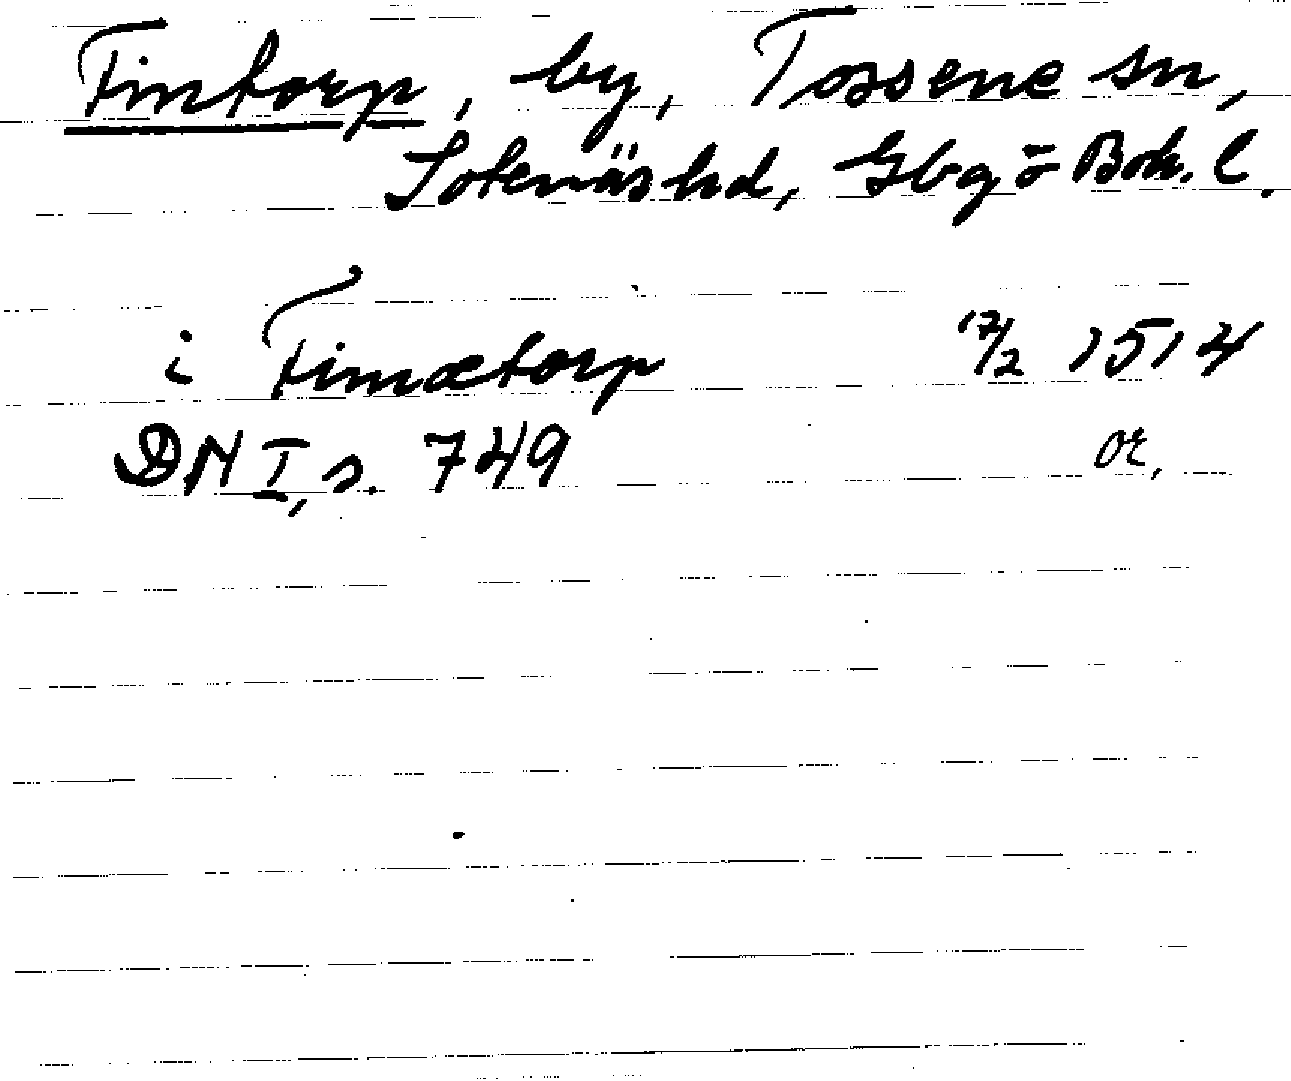 Fintorp, by, Tossene sn,
Sotenäs hd, Gbg o Boh. l.
i Fimætorp 17/2 1514
DN I, s. 749 or,